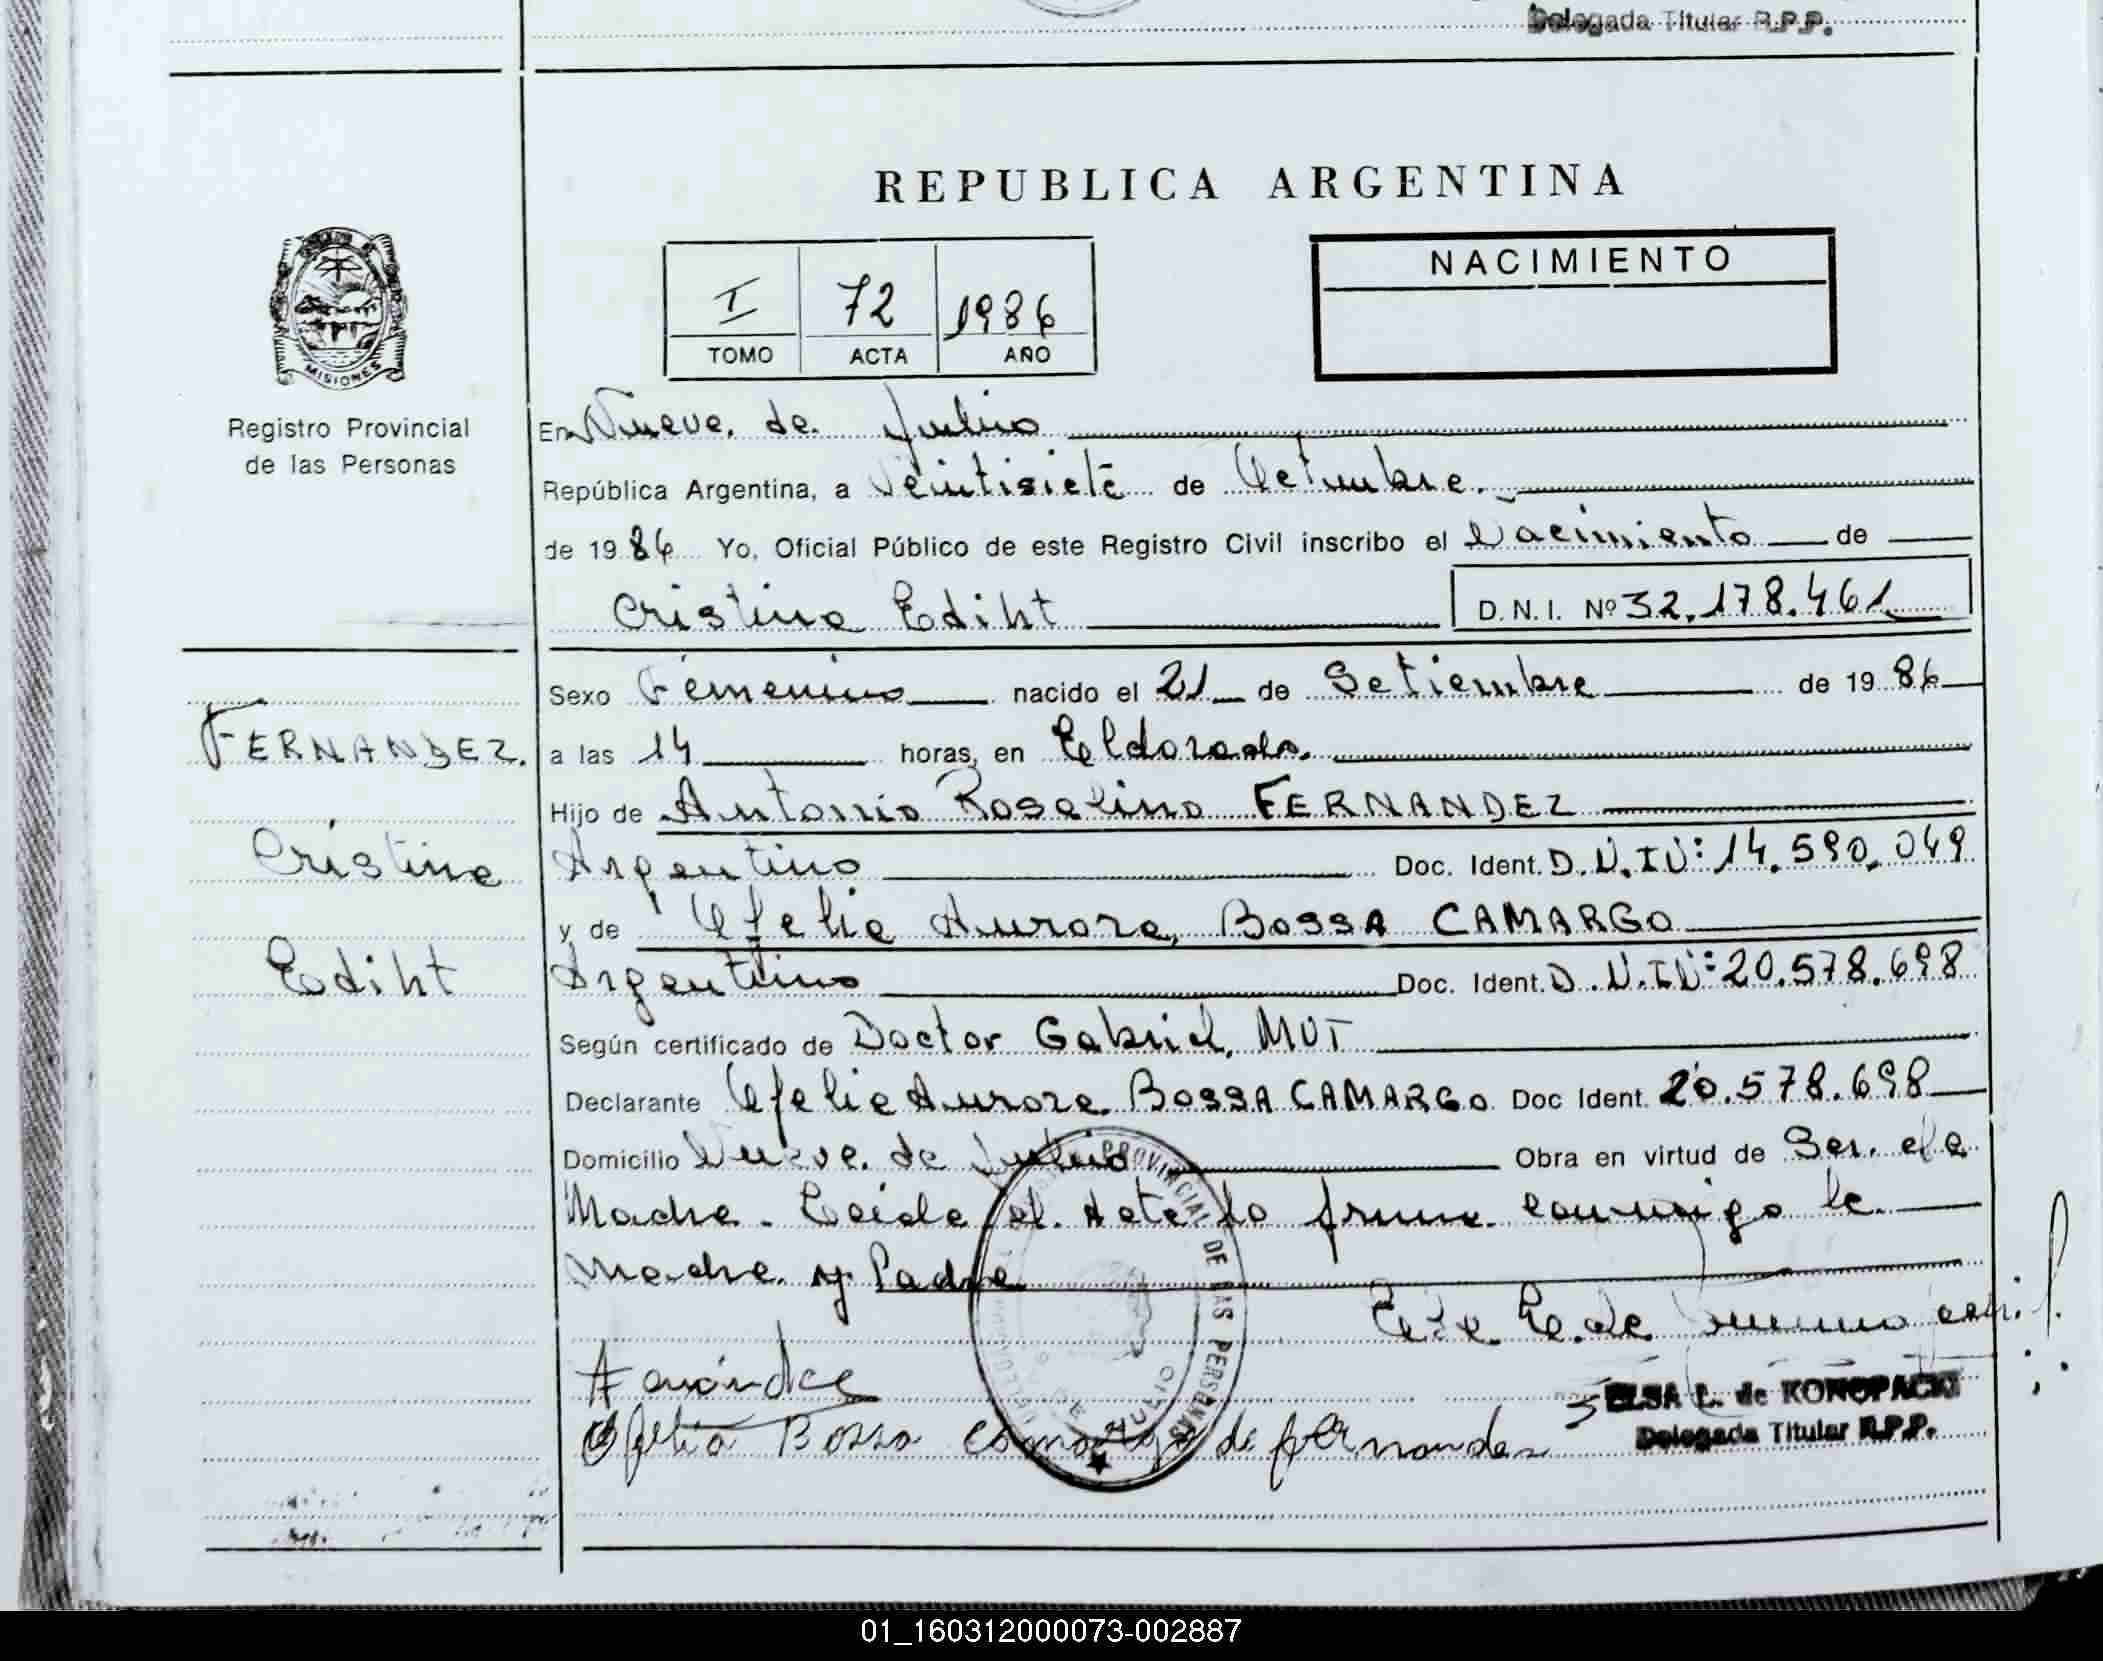 Delegada Titular R.P.P.
REPUBLICA ARGENTINA
NACIMIENTO
I 72 1986
TOMO ACTA AÑO
MISIONES
Registro Provincial
de las Personas
En Nueve de Julio
República Argentina, a Veintisiete de Octubre.
de 1986 Yo, Oficial Público de este Registro Civil inscribo el Nacimiento de
Cristina Ediht D.N.I. Nº 32.178.461
Sexo Femenino nacido el 21 de Setiembre de 1986
FERNANDEZ.
a las 14 horas, en Eldorado.
Hijo de Antonio Roselino FERNANDEZ
Cristina
Argentino Doc. Ident. D.N.IN: 14.590.049
y de Ofelia Aurora, BOSSA CAMARGO
Ediht
Argentino Doc. Ident. D.N.IN: 20.578.698
Según certificado de Doctor Gabriel, MUT
Declarante Ofelia Aurora BOSSA CAMARGO Doc Ident. 20.578.698
Domicilio Nueve de Julio Obra en virtud de Ser. de
Madre. Leida el Acta la firma conmigo la
Madre y Padre
PROVINCIAL DE LAS PERSONAS
Ofelia Bossa Camargo de fernandez
ELSA L. de KONOPACKI
Delegada Titular R.P.P.
01_160312000073-002887